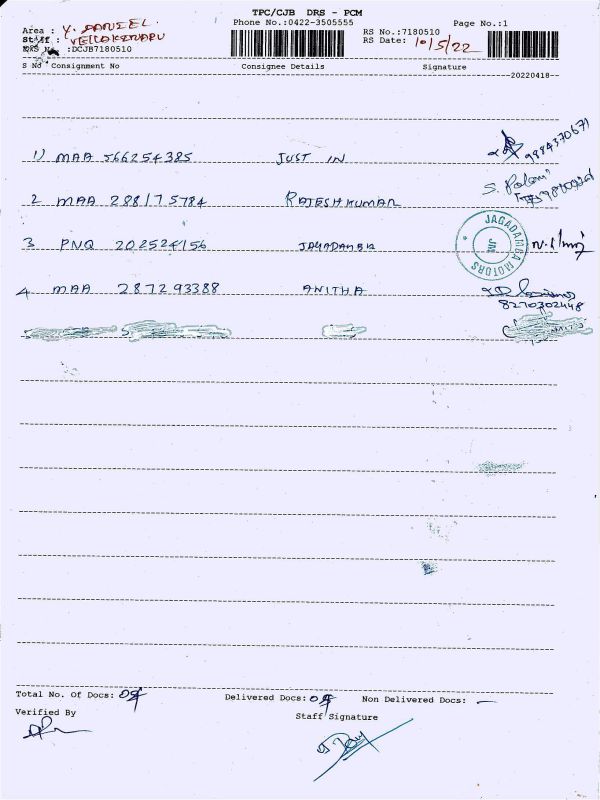 TPC/CJB DRS - PCM
Area : Y. DANIEL. Phone No.:0422-3505555 Page No.:1
Staff : RS No.:7180510
DRS No. :DCJB7180510 RS Date: 10/5/22
S No Consignment No Consignee Details Signature
20220418
1) MAA 566254385 JUST IN 9884370671
2 MAA 288175784 RAJESH KUMAR S. Palani
3 PNQ 202524156 JAGADAMBA JAGADAMBA MOTORS JM
4 MAA 287293388 ANITHA
8270302448
Total No. Of Docs: 04 Delivered Docs: 04 Non Delivered Docs: —
Verified By Staff Signature